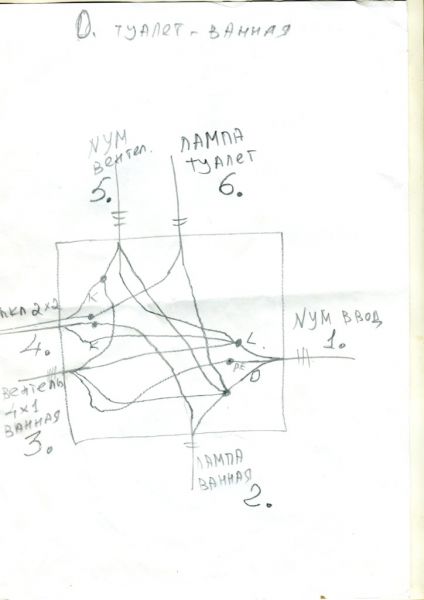 0. ТУАЛЕТ - ВАННАЯ
NYM
ВЕНТЕЛ.
5.
ЛАМПА
ТУАЛЕТ
6.
К
2×2
4.
К
L.
PE
0
NYM ВВОД
1.
ВЕНТЕЛЬ
4×1
ВАННАЯ
3.
ЛАМПА
ВАННАЯ
2.